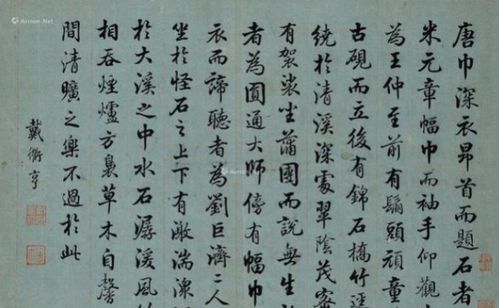 唐巾深衣昂首而題石者
米元章幅巾而袖手仰觀
為王仲至前有鬅頭頑童
古硯而立後有錦石橋竹逕
繞於清溪深處翠陰茂密
有袈裟坐蒲團而說無生
者為圓通大師傍有幅巾
衣而諦聽者為劉巨濟二人
坐於怪石之上下有激湍潨
於大溪之中水石潺湲風竹
相吞煙爐方裊草木自馨
間清曠之樂不過於此
戴衢亨